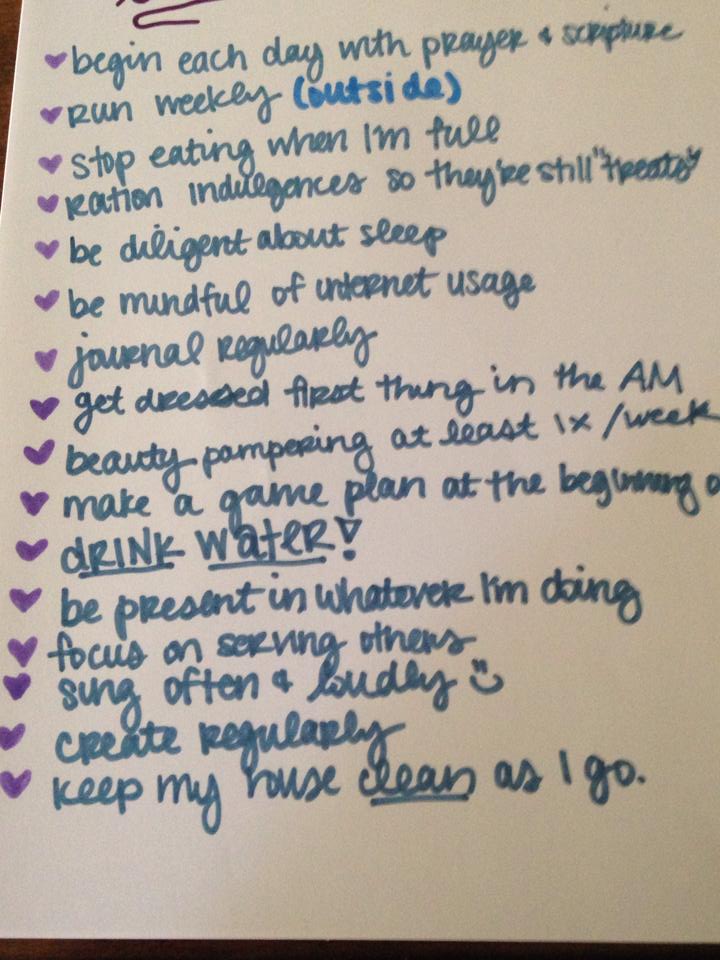 begin each day with prayer & scripture
run weekly (outside)
stop eating when I'm full
ration indulgences so they're still "treats"
be diligent about sleep
be mindful of internet usage
journal regularly
get dressed first thing in the AM
beauty pampering at least 1x/week
make a game plan at the beginning o
DRINK WATER!
be present in whatever I'm doing
focus on serving others
sing often & loudly
create regularly
keep my house clean as I go.